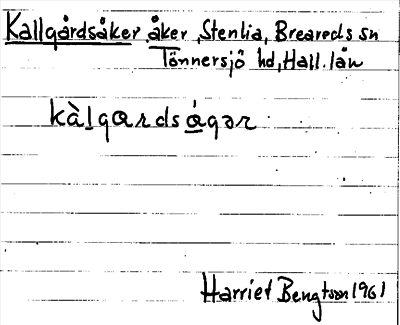 Kallgårdsåker, åker, Stenlia, Breareds sn
Tönnersjö hd, Hall. län
kàlgardságər
Harriet Bengtson 1961